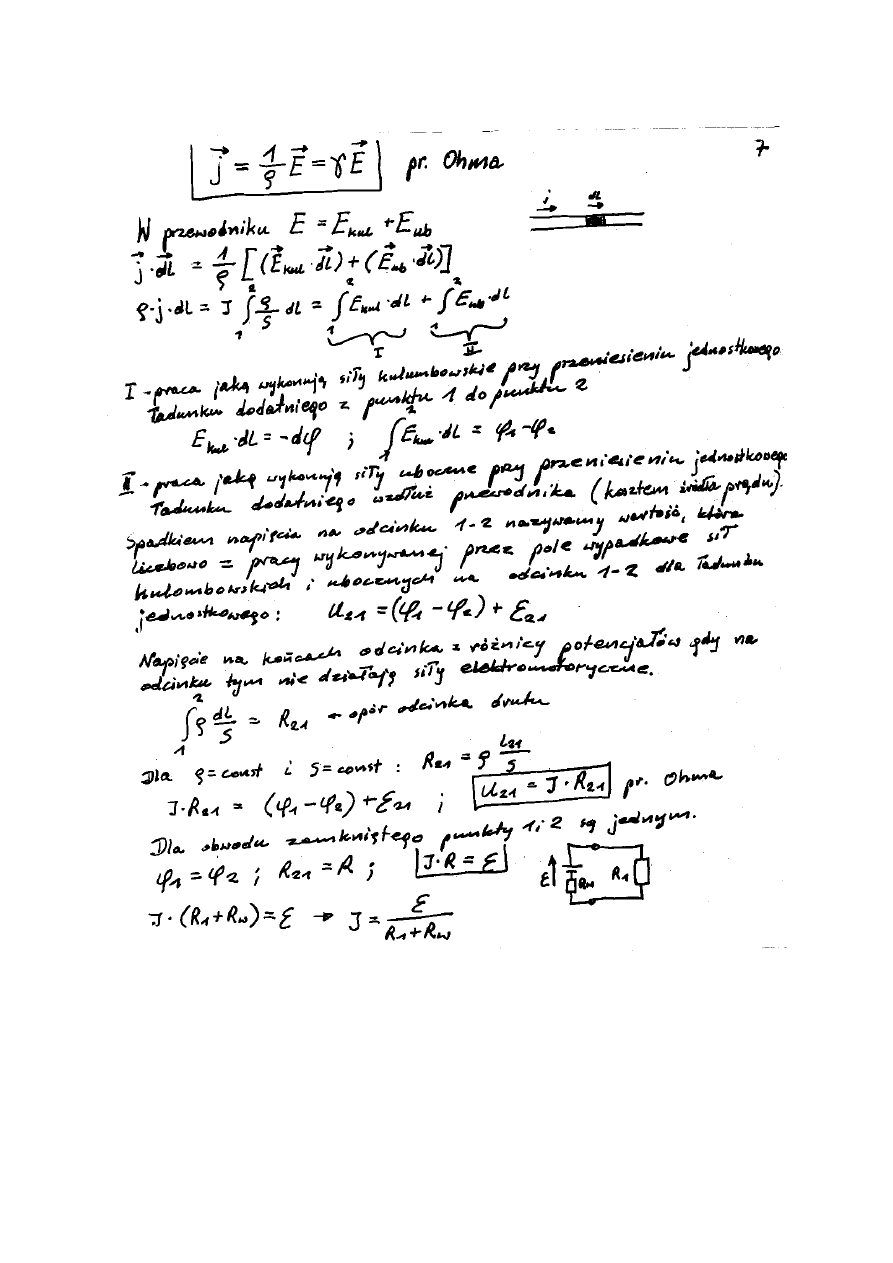 7
j⃗ = 1/ρ E⃗ = γE⃗ pr. Ohma
j⃗ dl⃗
W przewodniku E = E_kul + E_ub
j⃗·dl⃗ = 1/ρ [(E⃗_kul·dl⃗)+(E⃗_ub·dl⃗)]
ρ·j·dl = J ₁∫² ρ/S dl = ₁∫² E_kul·dl + ₁∫² E_ub·dl
I II
I - praca jaką wykonują siły kulumbowskie przy przeniesieniu jednostkowego
ładunku dodatniego z punktu 1 do punktu 2
E_kul·dl = -dφ ; ₁∫² E_kul·dl = φ₁-φ₂
II - praca jaką wykonują siły uboczne przy przeniesieniu jednostkowego
ładunku dodatniego wzdłuż przewodnika (kosztem źródła prądu).
Spadkiem napięcia na odcinku 1-2 nazywamy wartość, która
liczbowo = pracy wykonywanej przez pole wypadkowe sił
kulombowskich i ubocznych na odcinku 1-2 dla ładunku
jednostkowego: U₂₁ = (φ₁-φ₂) + ε₂₁
Napięcie na końcach odcinka = różnicy potencjałów gdy na
odcinku tym nie działają siły elektromotoryczne.
₁∫² ρ dl/S = R₂₁ ← opór odcinka drutu
Dla ρ=const i S=const : R₂₁ = ρ l₂₁/S
J·R₂₁ = (φ₁-φ₂)+ε₂₁ ; U₂₁ = J·R₂₁ pr. Ohma
Dla obwodu zamkniętego punkty 1 i 2 są jednym.
φ₁=φ₂ ; R₂₁=R ; J·R = ε
ε R_w R₁
J·(R₁+R_w)=ε → J = ε/(R₁+R_w)